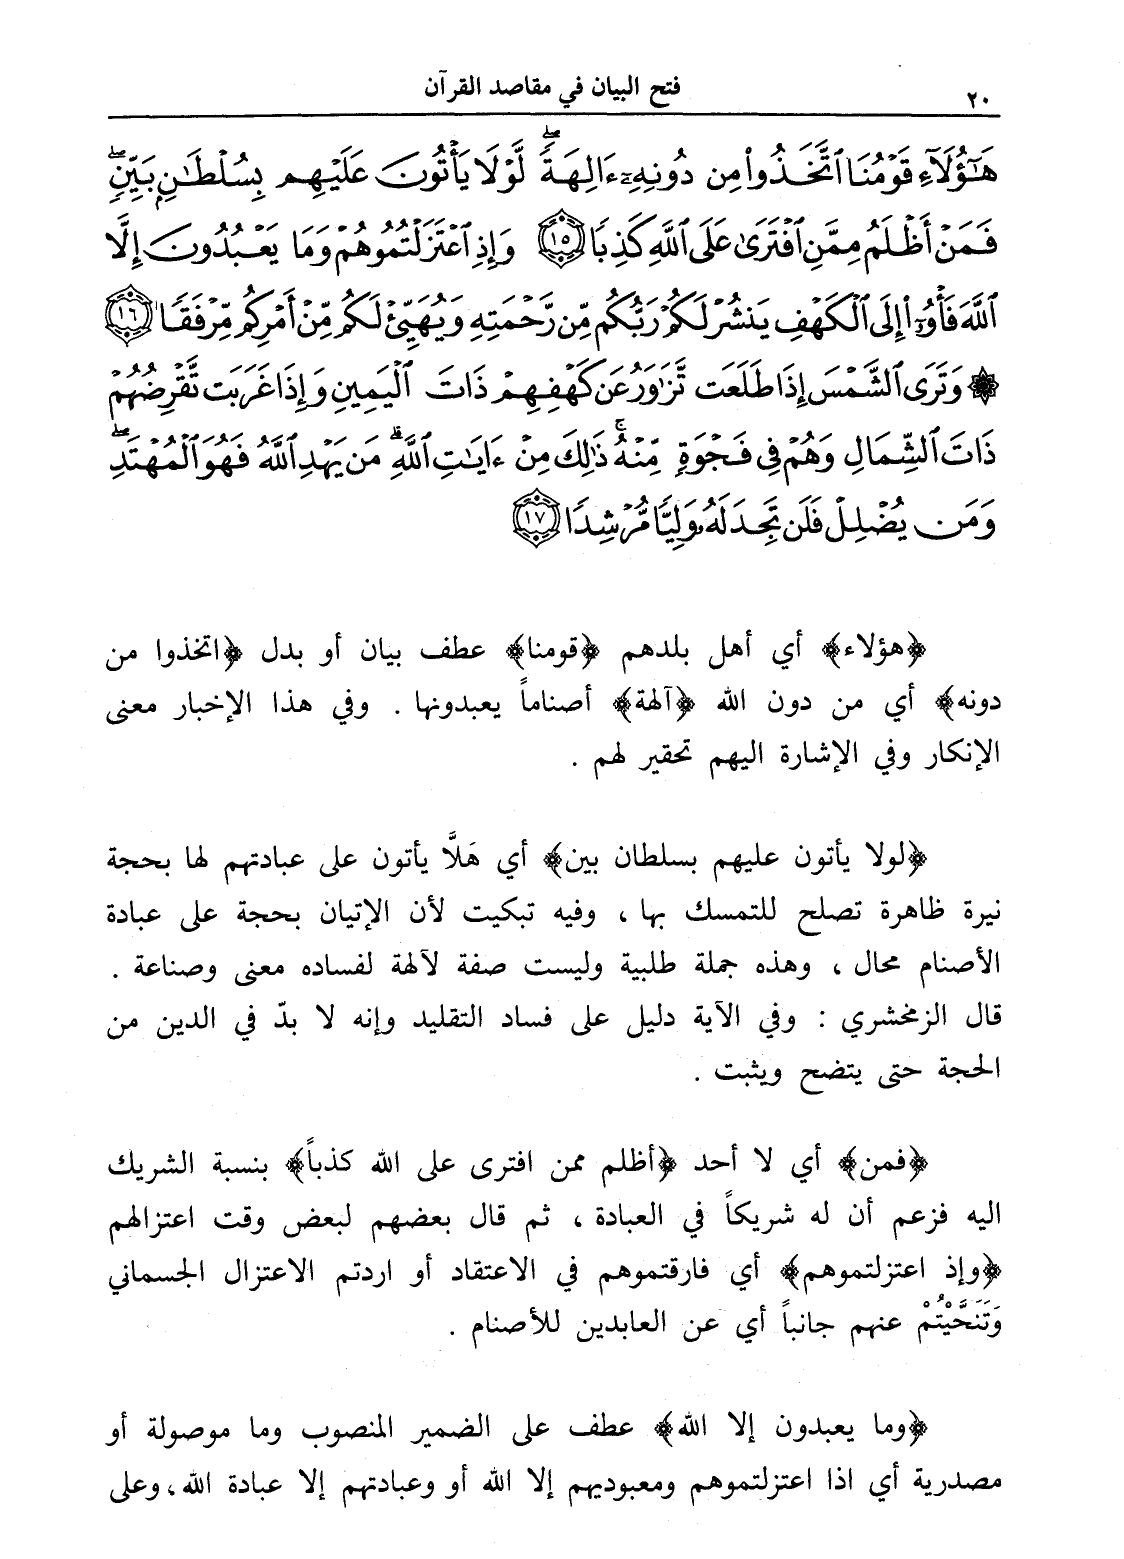 ٢٠ فتح البيان في مقاصد القرآن
هَٰٓؤُلَآءِ قَوۡمُنَا ٱتَّخَذُواْ مِن دُونِهِۦٓ ءَالِهَةٗۖ لَّوۡلَا يَأۡتُونَ عَلَيۡهِم بِسُلۡطَٰنِۭ بَيِّنٖۖ
فَمَنۡ أَظۡلَمُ مِمَّنِ ٱفۡتَرَىٰ عَلَى ٱللَّهِ كَذِبٗا ١٥ وَإِذِ ٱعۡتَزَلۡتُمُوهُمۡ وَمَا يَعۡبُدُونَ إِلَّا
ٱللَّهَ فَأۡوُۥٓاْ إِلَى ٱلۡكَهۡفِ يَنشُرۡ لَكُمۡ رَبُّكُم مِّن رَّحۡمَتِهِۦ وَيُهَيِّئۡ لَكُم مِّنۡ أَمۡرِكُم مِّرۡفَقٗا ١٦
۞ وَتَرَى ٱلشَّمۡسَ إِذَا طَلَعَت تَّزَٰوَرُ عَن كَهۡفِهِمۡ ذَاتَ ٱلۡيَمِينِ وَإِذَا غَرَبَت تَّقۡرِضُهُمۡ
ذَاتَ ٱلشِّمَالِ وَهُمۡ فِي فَجۡوَةٖ مِّنۡهُۚ ذَٰلِكَ مِنۡ ءَايَٰتِ ٱللَّهِۗ مَن يَهۡدِ ٱللَّهُ فَهُوَ ٱلۡمُهۡتَدِۖ
وَمَن يُضۡلِلۡ فَلَن تَجِدَ لَهُۥ وَلِيّٗا مُّرۡشِدٗا ١٧
﴿هؤلاء﴾ أي أهل بلدهم ﴿قومنا﴾ عطف بيان أو بدل ﴿اتخذوا من
دونه﴾ أي من دون الله ﴿آلهة﴾ أصناماً يعبدونها . وفي هذا الإخبار معنى
الإنكار وفي الإشارة اليهم تحقير لهم .
﴿لولا يأتون عليهم بسلطان بين﴾ أي هَلَّا يأتون على عبادتهم لها بحجة
نيرة ظاهرة تصلح للتمسك بها ، وفيه تبكيت لأن الإتيان بحجة على عبادة
الأصنام محال ، وهذه جملة طلبية وليست صفة لآلهة لفساده معنى وصناعة .
قال الزمخشري : وفي الآية دليل على فساد التقليد وإنه لا بدّ في الدين من
الحجة حتى يتضح ويثبت .
﴿فمن﴾ أي لا أحد ﴿أظلم ممن افترى على الله كذباً﴾ بنسبة الشريك
اليه فزعم أن له شريكاً في العبادة ، ثم قال بعضهم لبعض وقت اعتزالهم
﴿وإذ اعتزلتموهم﴾ أي فارقتموهم في الاعتقاد أو اردتم الاعتزال الجسماني
وَتَنَحَّيْتُمْ عنهم جانباً أي عن العابدين للأصنام .
﴿وما يعبدون إلا الله﴾ عطف على الضمير المنصوب وما موصولة أو
مصدرية أي اذا اعتزلتموهم ومعبوديهم إلا الله أو وعبادتهم إلا عبادة الله ، وعلى